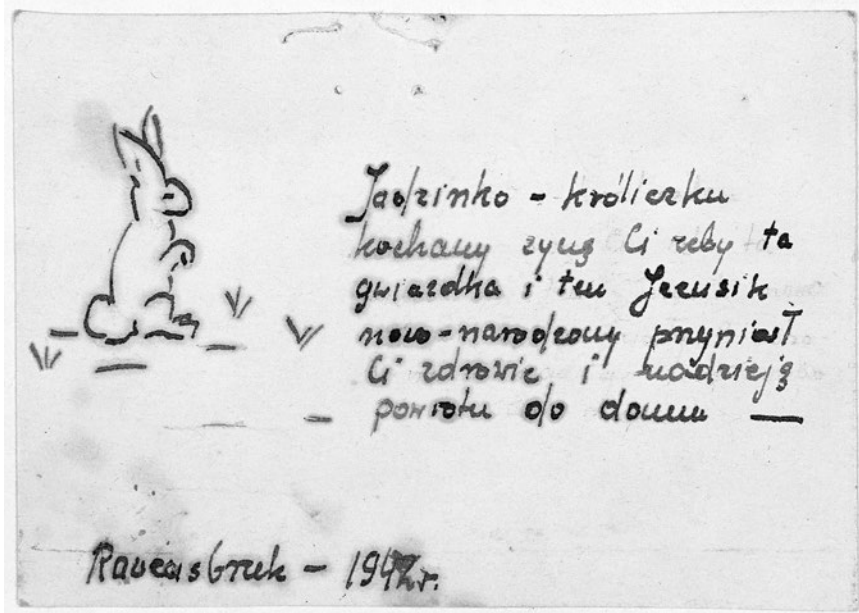 Jadzinko - króliczku
kochany życzę Ci żeby ta
gwiazdka i ten Jezusik
nowo-narodzony przyniósł
Ci zdrowie i nadzieję
powrotu do domu —
Ravensbrük - 1942r.